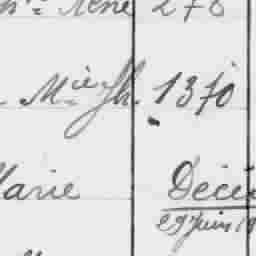 René 278
Mie Jh. 1370
Marie Décé
29 Juin 19